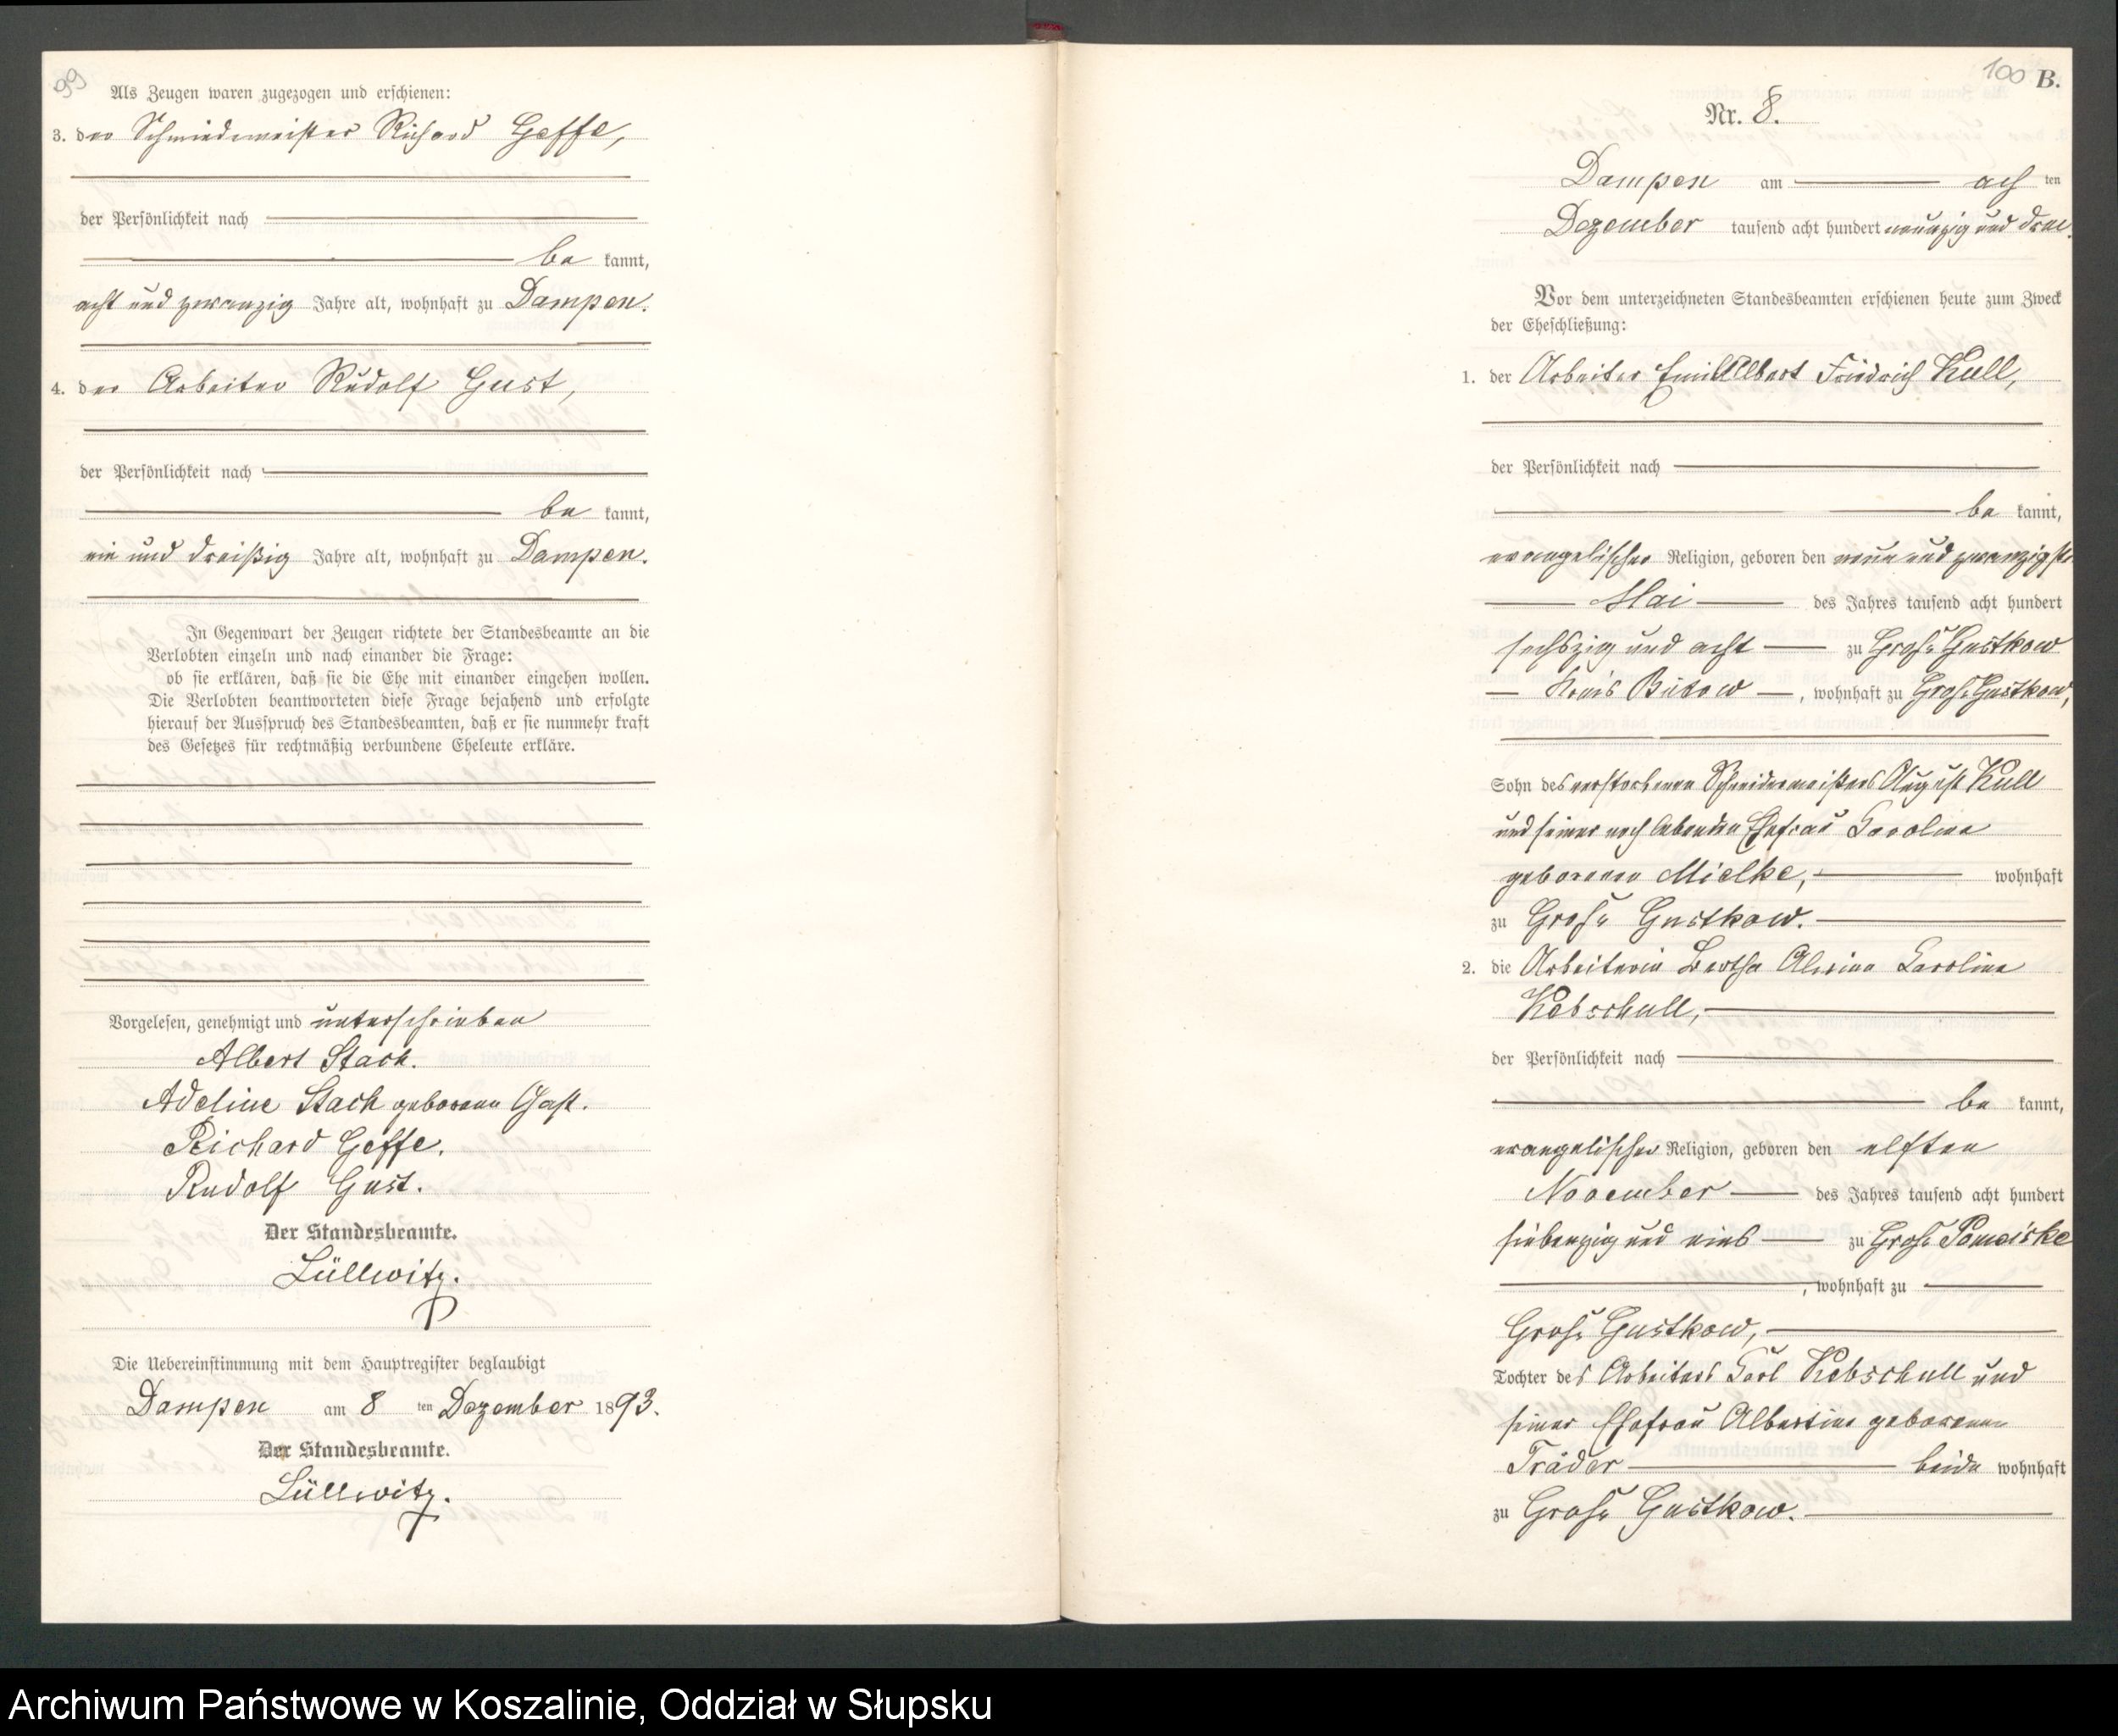 99
Als Zeugen waren zugezogen und erschienen:
3. der Schmiedemeister Richard Geffe,
der Persönlichkeit nach
be kannt,
acht und zwanzig Jahre alt, wohnhaft zu Dampen.
4. der Arbeiter Rudolf Gust,
der Persönlichkeit nach
be kannt,
ein und dreißig Jahre alt, wohnhaft zu Dampen.
In Gegenwart der Zeugen richtete der Standesbeamte an die
Verlobten einzeln und nach einander die Frage:
ob sie erklären, daß sie die Ehe mit einander eingehen wollen.
Die Verlobten beantworteten diese Frage bejahend und erfolgte
hierauf der Ausspruch des Standesbeamten, daß er sie nunmehr kraft
des Gesetzes für rechtmäßig verbundene Eheleute erkläre.
Vorgelesen, genehmigt und unterschrieben
Albert Stach.
Adeline Stach geborene Gast.
Richard Geffe.
Rudolf Gust.
Der Standesbeamte.
Lüllwitz.
Die Uebereinstimmung mit dem Hauptregister beglaubigt
Dampen am 8 ten Dezember 1893.
Der Standesbeamte.
Lüllwitz.
100 B.
Nr. 8.
Dampen am ach ten
Dezember tausend acht hundert neunzig und drei.
Vor dem unterzeichneten Standesbeamten erschienen heute zum Zweck
der Eheschließung:
1. der Arbeiter Emil Albert Friedrich Kull,
der Persönlichkeit nach
be kannt,
evangelischer Religion, geboren den neun und zwanzigsten
Mai des Jahres tausend acht hundert
sechszig und acht zu Groß Gustkow
Kreis Bütow, wohnhaft zu Groß Gustkow,
Sohn des verstorbenen Schneidermeisters August Kull
und seiner noch lebenden Ehefrau Caroline
geborenen Mielke, wohnhaft
zu Groß Gustkow.
2. die Arbeiterin Bertha Alwine Caroline
Kebschull,
der Persönlichkeit nach
be kannt,
evangelischer Religion, geboren den elften
November des Jahres tausend acht hundert
siebenzig und eins zu Groß Pomeiske
, wohnhaft zu
Groß Gustkow,
Tochter des Arbeiters Carl Kebschull und
seiner Ehefrau Albertine geborenen
Träder beide wohnhaft
zu Groß Gustkow.
Archiwum Państwowe w Koszalinie, Oddział w Słupsku